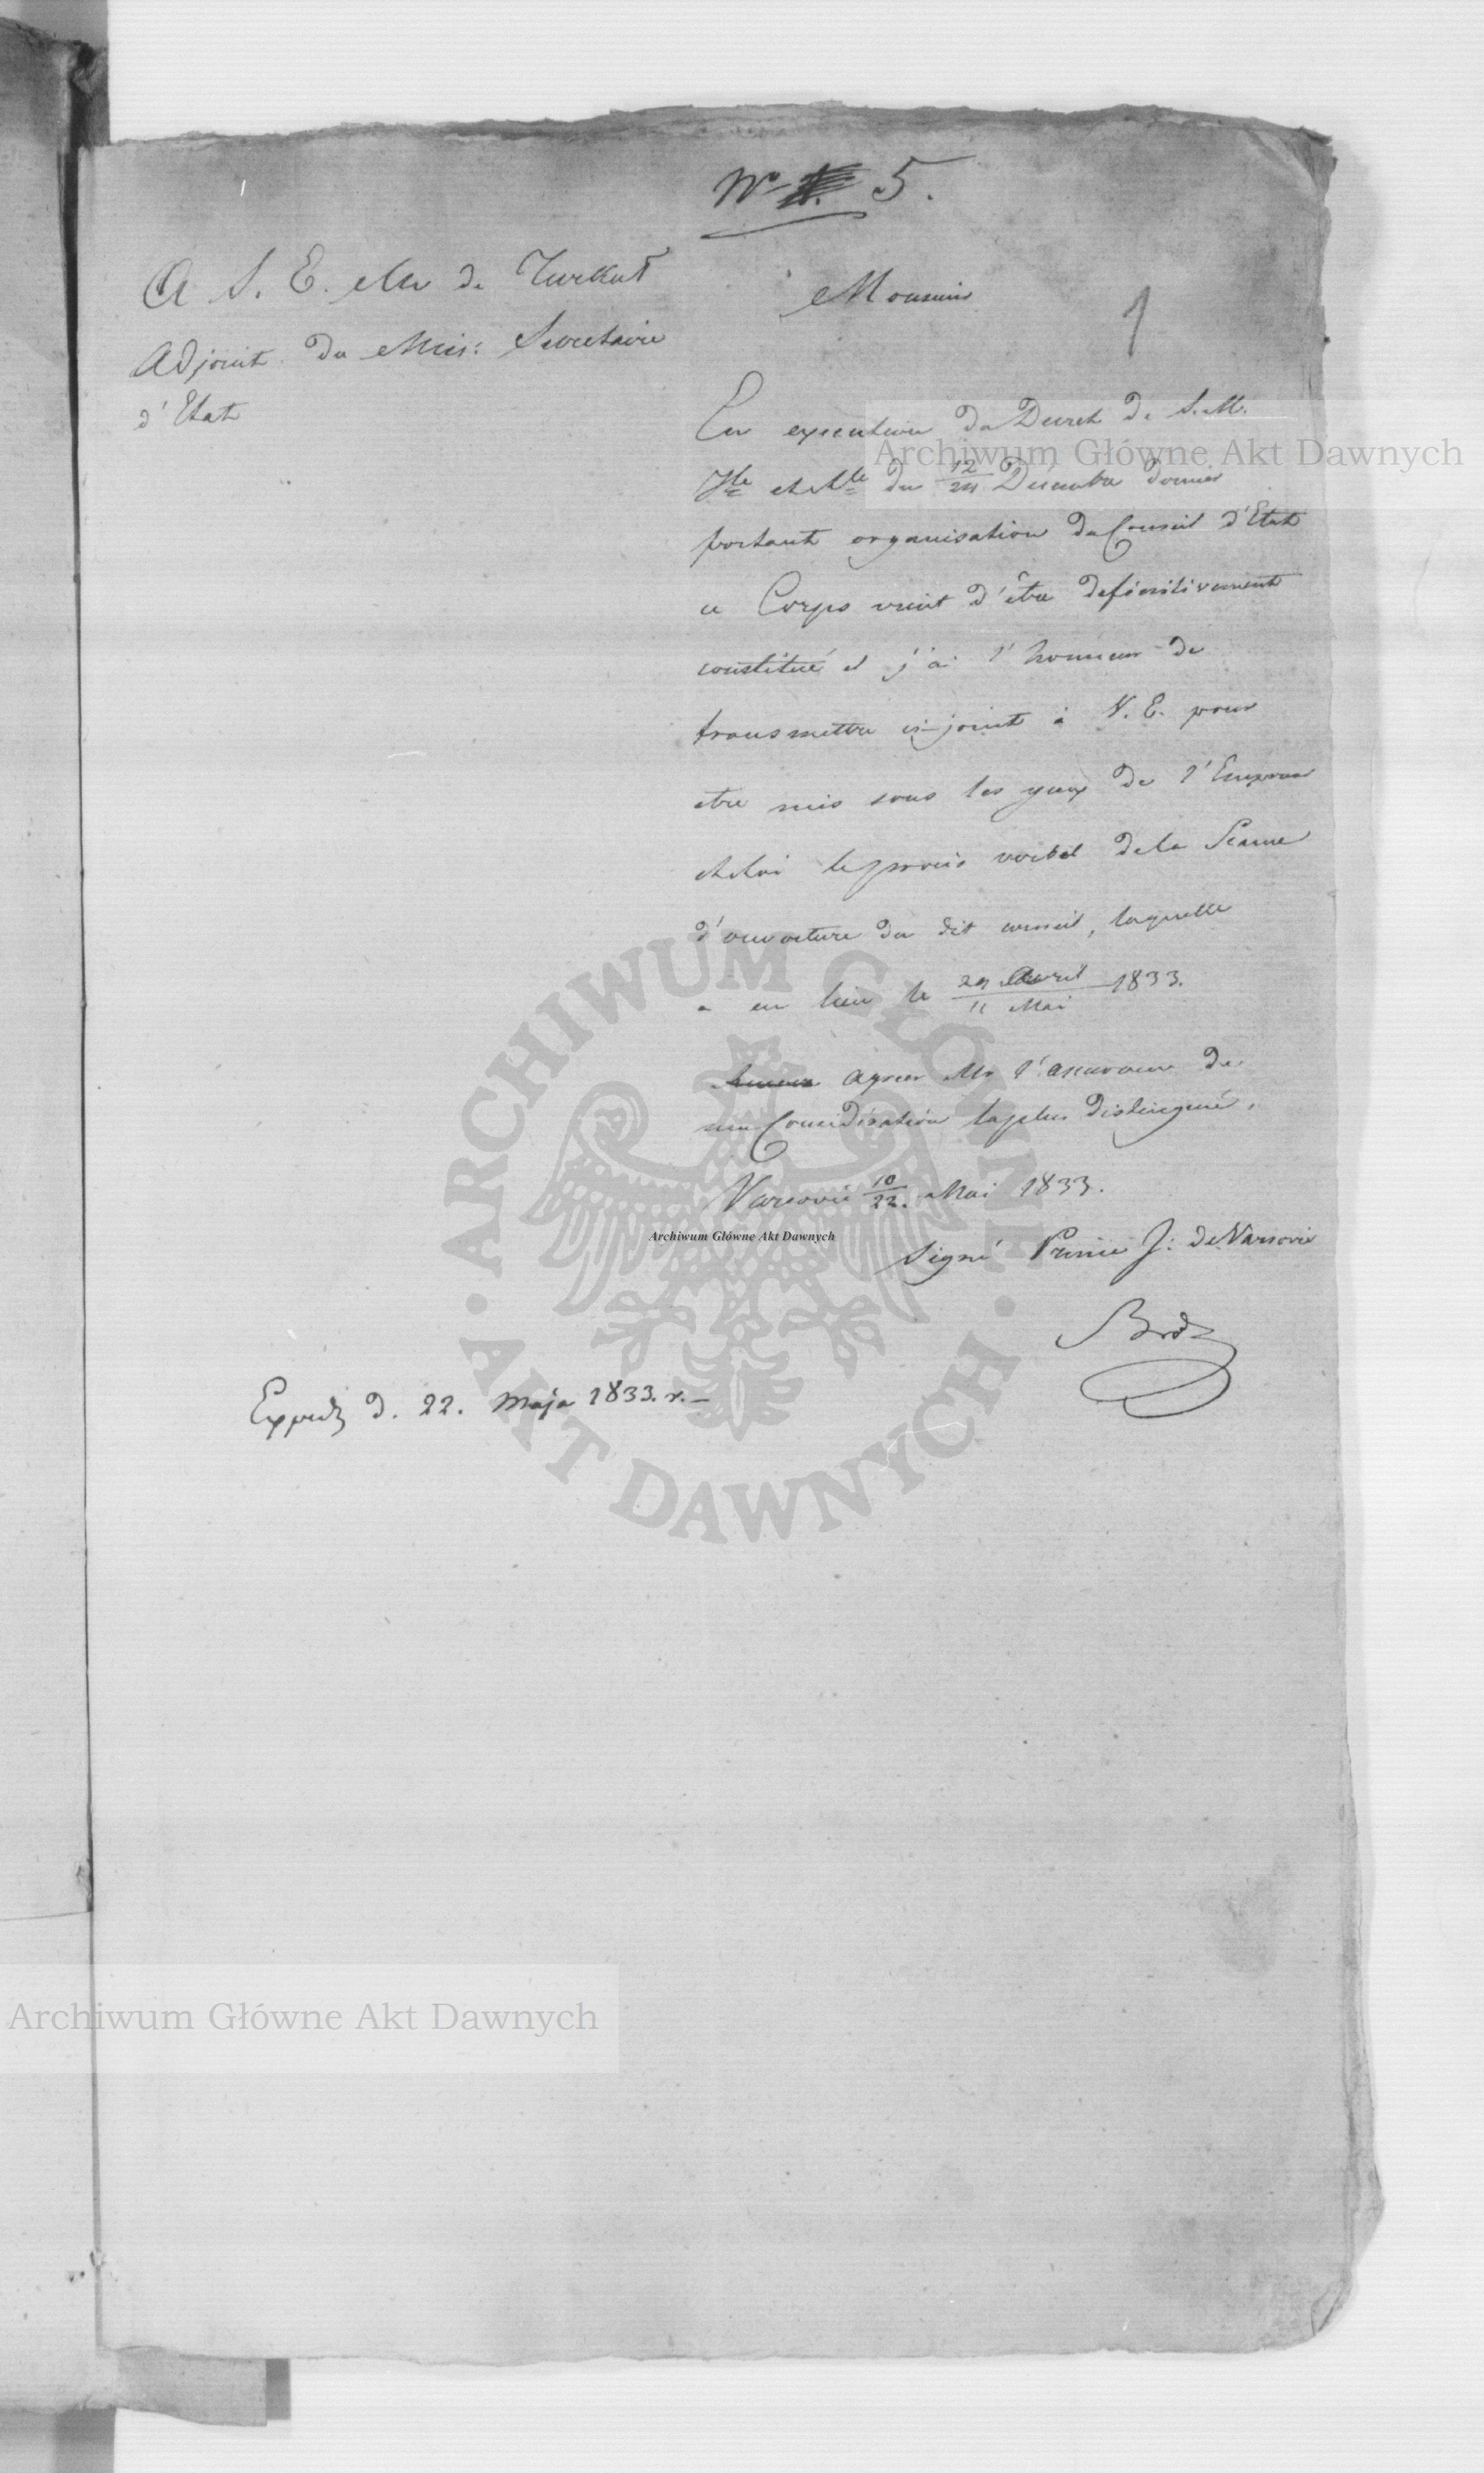 No 5.
1
A S. E. Mr de Turkuł
Adjoint du Min: Secretaire
d'Etat
Monsieur
En execution du Decret de S. M.
Ile et Rle du 12/24 Décembre dernier
portant organisation du Conseil d'Etat
ce Corps vient d'être definitivement
constitué et j'ai l'honneur de
transmettre ci-joint à V. E. pour
etre mis sous les yeux de l'Empereur
et Roi le procès verbal de la Seance
d'ouverture du dit conseil, laquelle
a eu lieu le 29 Avril / 11 Mai 1833.
Agréez Mr l'assurance de
ma Considération la plus distinguée.
Varsovie 10/22. Mai 1833.
Signé Prince J: de Varsovie
Exped. d. 22. Maja 1833. r.–
Archiwum Główne Akt Dawnych
Archiwum Główne Akt Dawnych
Archiwum Główne Akt Dawnych
ARCHIWUM GŁÓWNE • AKT DAWNYCH •